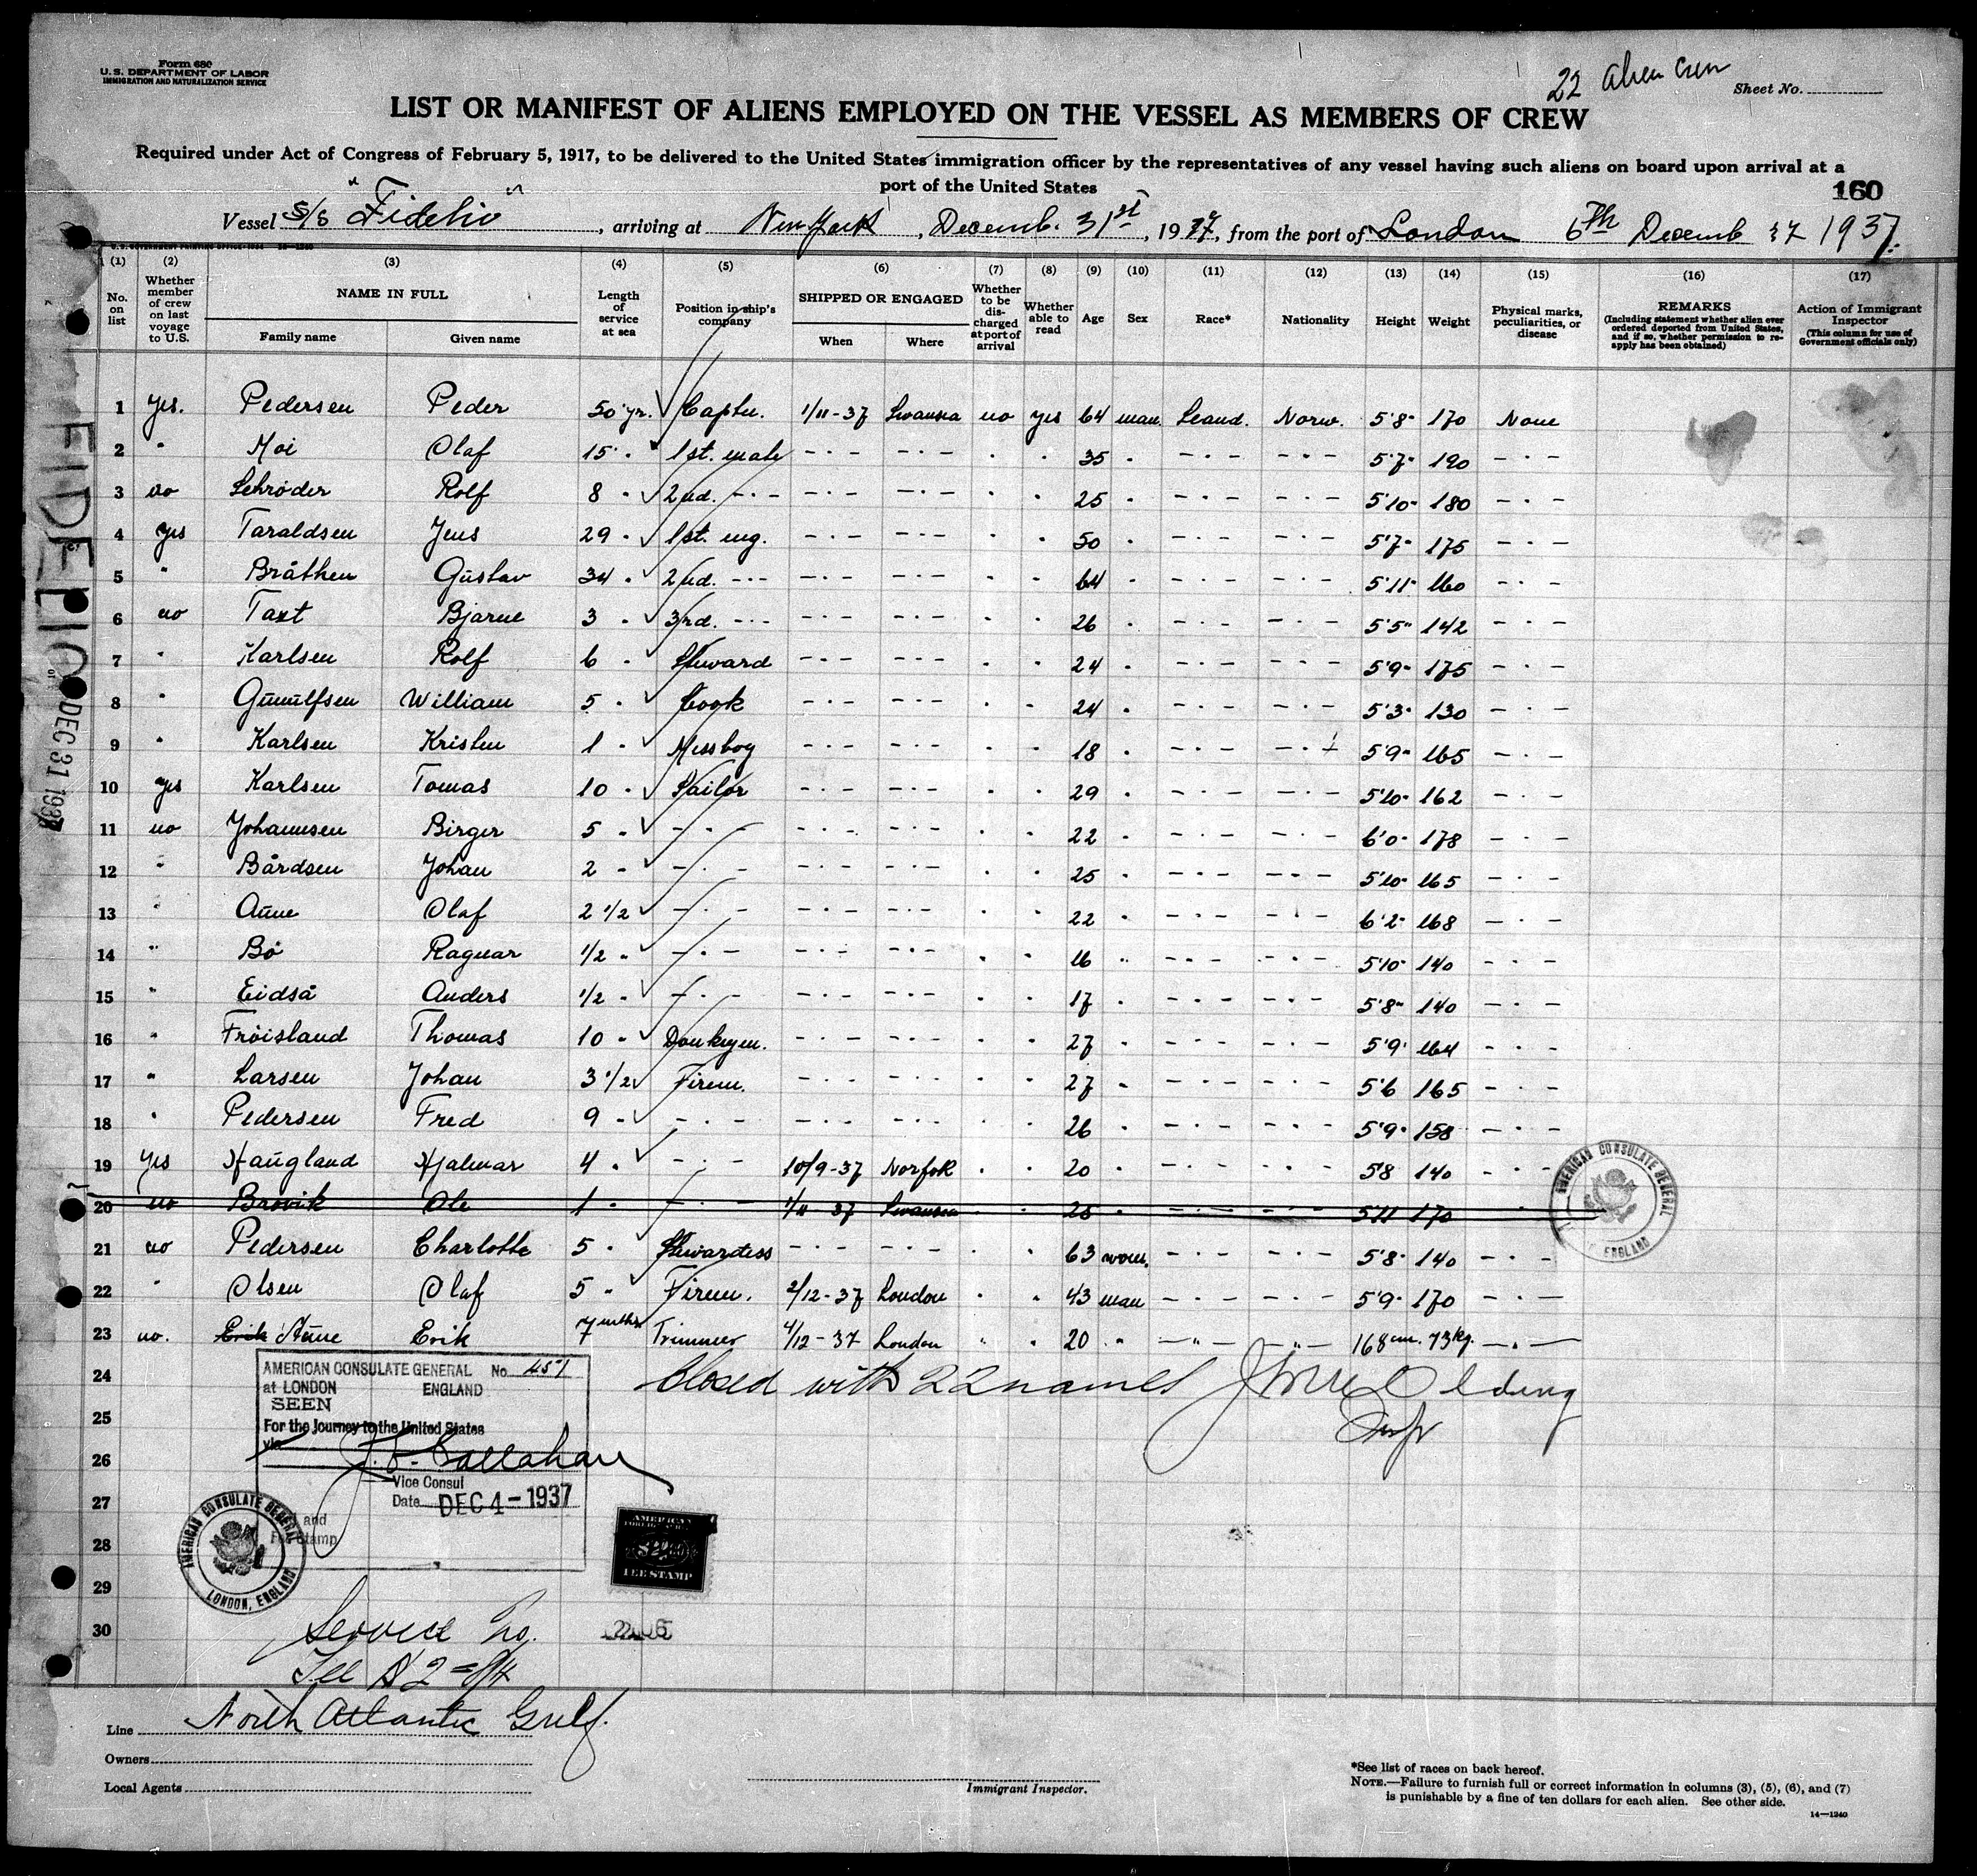 Form 680
U. S. DEPARTMENT OF LABOR
IMMIGRATION AND NATURALIZATION SERVICE
22 alien crew
Sheet No.
LIST OR MANIFEST OF ALIENS EMPLOYED ON THE VESSEL AS MEMBERS OF CREW
Required under Act of Congress of February 5, 1917, to be delivered to the United States immigration officer by the representatives of any vessel having such aliens on board upon arrival at a
port of the United States
160
Vessel S/S "Fidelio", arriving at New York, Decemb. 31st, 1937, from the port of London 6th Decemb 37 1937.
(1) (2) (3) (4) (5) (6) (7) (8) (9) (10) (11) (12) (13) (14) (15) (16) (17)
No. on list
Whether member of crew on last voyage to U.S.
NAME IN FULL
Family name
Given name
Length of service at sea
Position in ship's company
SHIPPED OR ENGAGED
When
Where
Whether to be discharged at port of arrival
Whether able to read
Age
Sex
Race*
Nationality
Height
Weight
Physical marks, peculiarities, or disease
REMARKS
(Including statement whether alien ever ordered deported from United States, and if so, whether permission to reapply has been obtained)
Action of Immigrant Inspector
(This column for use of Government officials only)
1 Yes. Pedersen Peder 50 yr. Captn. 1/11-37 Swansea no yes 64 man Scand. Norw. 5'8" 170 None
2 " Moi Olaf 15 " 1st. mate - " - - " - " " 35 " - " - - " - 5'7" 190 - " -
3 no Schrøder Rolf 8 " 2nd. - " - - " - - " - " " 25 " - " - - " - 5'10" 180 - " -
4 yes Taraldsen Jens 29 " 1st. eng. - " - - " - " " 50 " - " - - " - 5'7" 175 - " -
5 " Bråthen Gustav 34 " 2nd. - " - - " - - " - " " 64 " - " - - " - 5'11" 160 - " -
6 no Taxt Bjarne 3 " 3rd. - " - - " - - " - " " 26 " - " - - " - 5'5" 142 - " -
7 " Karlsen Rolf 6 " Steward - " - - " - " " 24 " - " - - " - 5'9" 175 - " -
8 " Gunulfsen William 5 " Cook - " - - " - " " 24 " - " - - " - 5'3" 130 - " -
9 " Karlsen Kristen 1 " Messboy - " - - " - " " 18 " - " - - " - 5'9" 165 - " -
10 yes Karlsen Tomas 10 " Sailor - " - - " - " " 29 " - " - - " - 5'10" 162 - " -
11 no Johannsen Birger 5 " - " - - " - - " - " " 22 " - " - - " - 6'0" 178 - " -
12 " Bårdsen Johan 2 " - " - - " - - " - " " 25 " - " - - " - 5'10" 165 - " -
13 " Aune Olaf 2 1/2 - " - - " - - " - " " 22 " - " - - " - 6'2" 168 - " -
14 " Bø Ragnar 1/2 " - " - - " - - " - " " 16 " - " - - " - 5'10" 140 - " -
15 " Eidså Anders 1/2 " - " - - " - - " - " " 17 " - " - - " - 5'8" 140 - " -
16 " Frøisland Thomas 10 " Donkeym. - " - - " - " " 27 " - " - - " - 5'9" 164 - " -
17 " Larsen Johan 3 1/2 Firem. - " - - " - " " 27 " - " - - " - 5'6 165 - " -
18 " Pedersen Fred 9 " - " - - " - - " - " " 26 " - " - - " - 5'9" 158 - " -
19 Yes Haugland Hjalmar 4 " - " - 10/9-37 Norfok " " 20 " - " - - " - 5'8 140 - " -
20 no Brovik Ole 1 " - " - 1/11-37 Swansea " " 25 " - " - - " - 5'11 170
21 no Pedersen Charlotte 5 " Stewardess - " - - " - " " 63 wom. - " - - " - 5'8" 140 - " -
22 " Olsen Olaf 5 " Firem. 2/12-37 London " " 43 man - " - - " - 5'9" 170 - " -
23 no. Erik Aune Erik 7 mths Trimmer 4/12-37 London " " 20 " - " - - " - 168 cm. 73 kg. - " -
24 Closed with 22 names
25 Insp
26
27
28
29
30
AMERICAN CONSULATE GENERAL No. 457
at LONDON ENGLAND
SEEN
For the Journey to the United States
via
J. F. Callahan
Vice Consul
Date DEC 4 - 1937
Fee Stamp
AMERICAN CONSULATE GENERAL
LONDON, ENGLAND
AMERICAN CONSULATE GENERAL
ENGLAND
AMERICAN
FEE STAMP
Service No.
Fee $2
FIDELIO
DEC 31 1937
Line North Atlantic Gulf.
Owners
Local Agents
Immigrant Inspector.
*See list of races on back hereof.
NOTE.—Failure to furnish full or correct information in columns (3), (5), (6), and (7)
is punishable by a fine of ten dollars for each alien. See other side.
14—1240